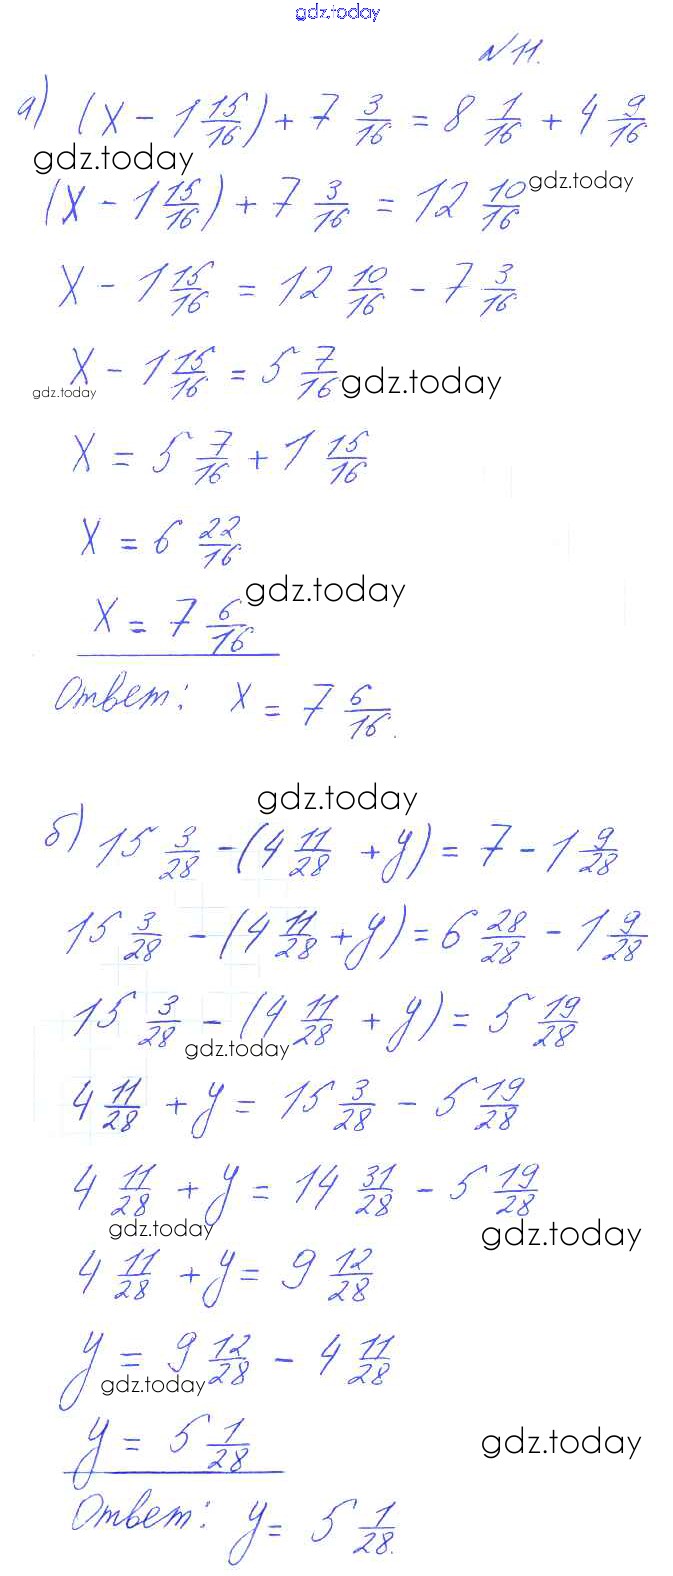 gdz.today
№11.
а) (x - 1 15/16) + 7 3/16 = 8 1/16 + 4 9/16
gdz.today
(x - 1 15/16) + 7 3/16 = 12 10/16 gdz.today
x - 1 15/16 = 12 10/16 - 7 3/16
x - 1 15/16 = 5 7/16 gdz.today
gdz.today
x = 5 7/16 + 1 15/16
x = 6 22/16
gdz.today
x = 7 6/16
Ответ: x = 7 6/16.
gdz.today
б) 15 3/28 - (4 11/28 + y) = 7 - 1 9/28
15 3/28 - (4 11/28 + y) = 6 28/28 - 1 9/28
15 3/28 - (4 11/28 + y) = 5 19/28
gdz.today
4 11/28 + y = 15 3/28 - 5 19/28
4 11/28 + y = 14 31/28 - 5 19/28
gdz.today gdz.today
4 11/28 + y = 9 12/28
y = 9 12/28 - 4 11/28
gdz.today
y = 5 1/28 gdz.today
Ответ: y = 5 1/28.